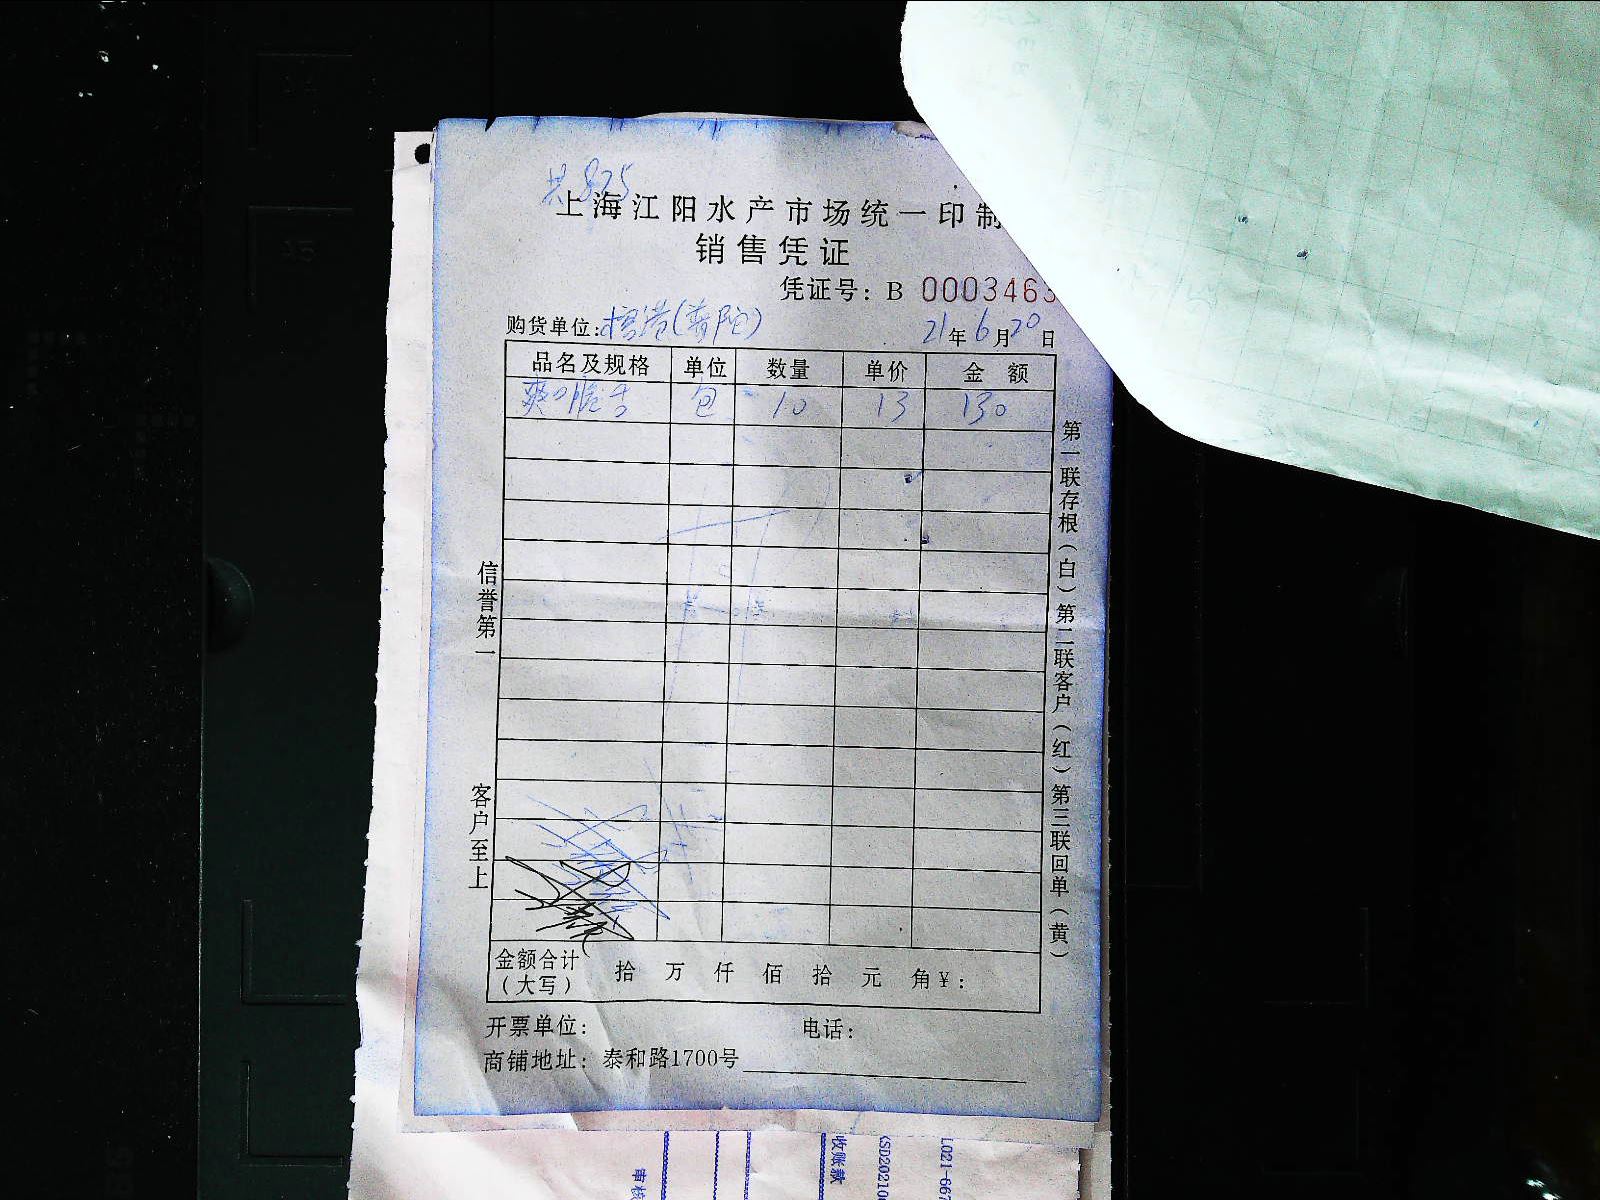 共825
上海江阳水产市场统一印制
销售凭证
凭证号：B 0003463
购货单位：杨浩(普陀) 21年6月20日
品名及规格 单位 数量 单价 金额
爽口脆舌 包 10 13 130
信誉第一
客户至上
第一联存根（白）第二联客户（红）第三联回单（黄）
金额合计（大写） 拾 万 仟 佰 拾 元 角 ¥：
开票单位： 电话：
商铺地址：泰和路1700号
审核
收账款
(SD20210
L021-667